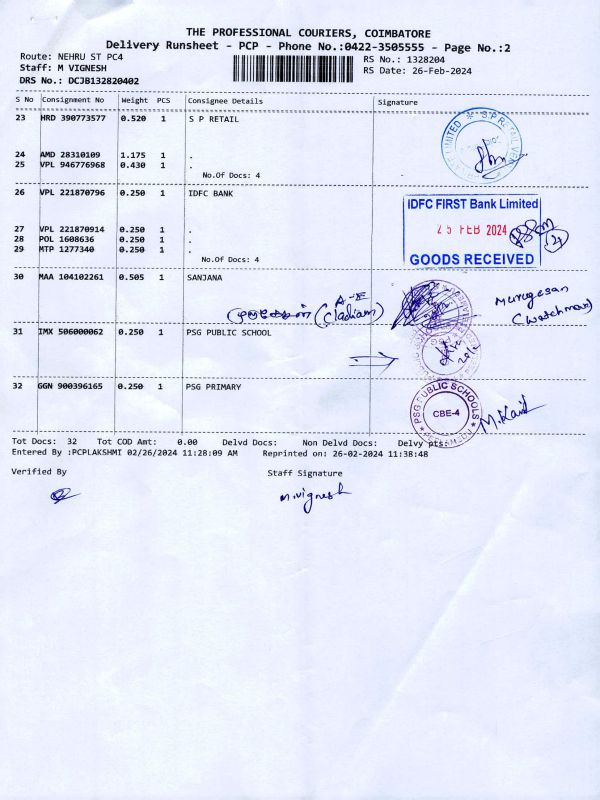 THE PROFESSIONAL COURIERS, COIMBATORE
Delivery Runsheet - PCP - Phone No.:0422-3505555 - Page No.:2
Route: NEHRU ST PC4
RS No.: 1328204
Staff: M VIGNESH
RS Date: 26-Feb-2024
DRS No.: DCJB132820402
S No Consignment No Weight PCS Consignee Details Signature
23 HRD 390773577 0.520 1 S P RETAIL
24 AMD 28310109 1.175 1 .
25 VPL 946776968 0.430 1 .
No.Of Docs: 4
26 VPL 221870796 0.250 1 IDFC BANK
IDFC FIRST Bank Limited
27 VPL 221870914 0.250 1 .
25 FEB 2024
28 POL 1608636 0.250 1 .
29 MTP 1277340 0.250 1 .
No.Of Docs: 4
GOODS RECEIVED
30 MAA 104102261 0.505 1 SANJANA
முருகேசன்
Murugesan
(watchman)
31 IMX 506000062 0.250 1 PSG PUBLIC SCHOOL
32 GGN 900396165 0.250 1 PSG PRIMARY
PSG PUBLIC SCHOOLS
CBE-4
PEELAMEDU
Tot Docs: 32 Tot COD Amt: 0.00 Delvd Docs: Non Delvd Docs: Delvy pts:
Entered By :PCPLAKSHMI 02/26/2024 11:28:09 AM Reprinted on: 26-02-2024 11:38:48
Verified By Staff Signature
M.Vignesh